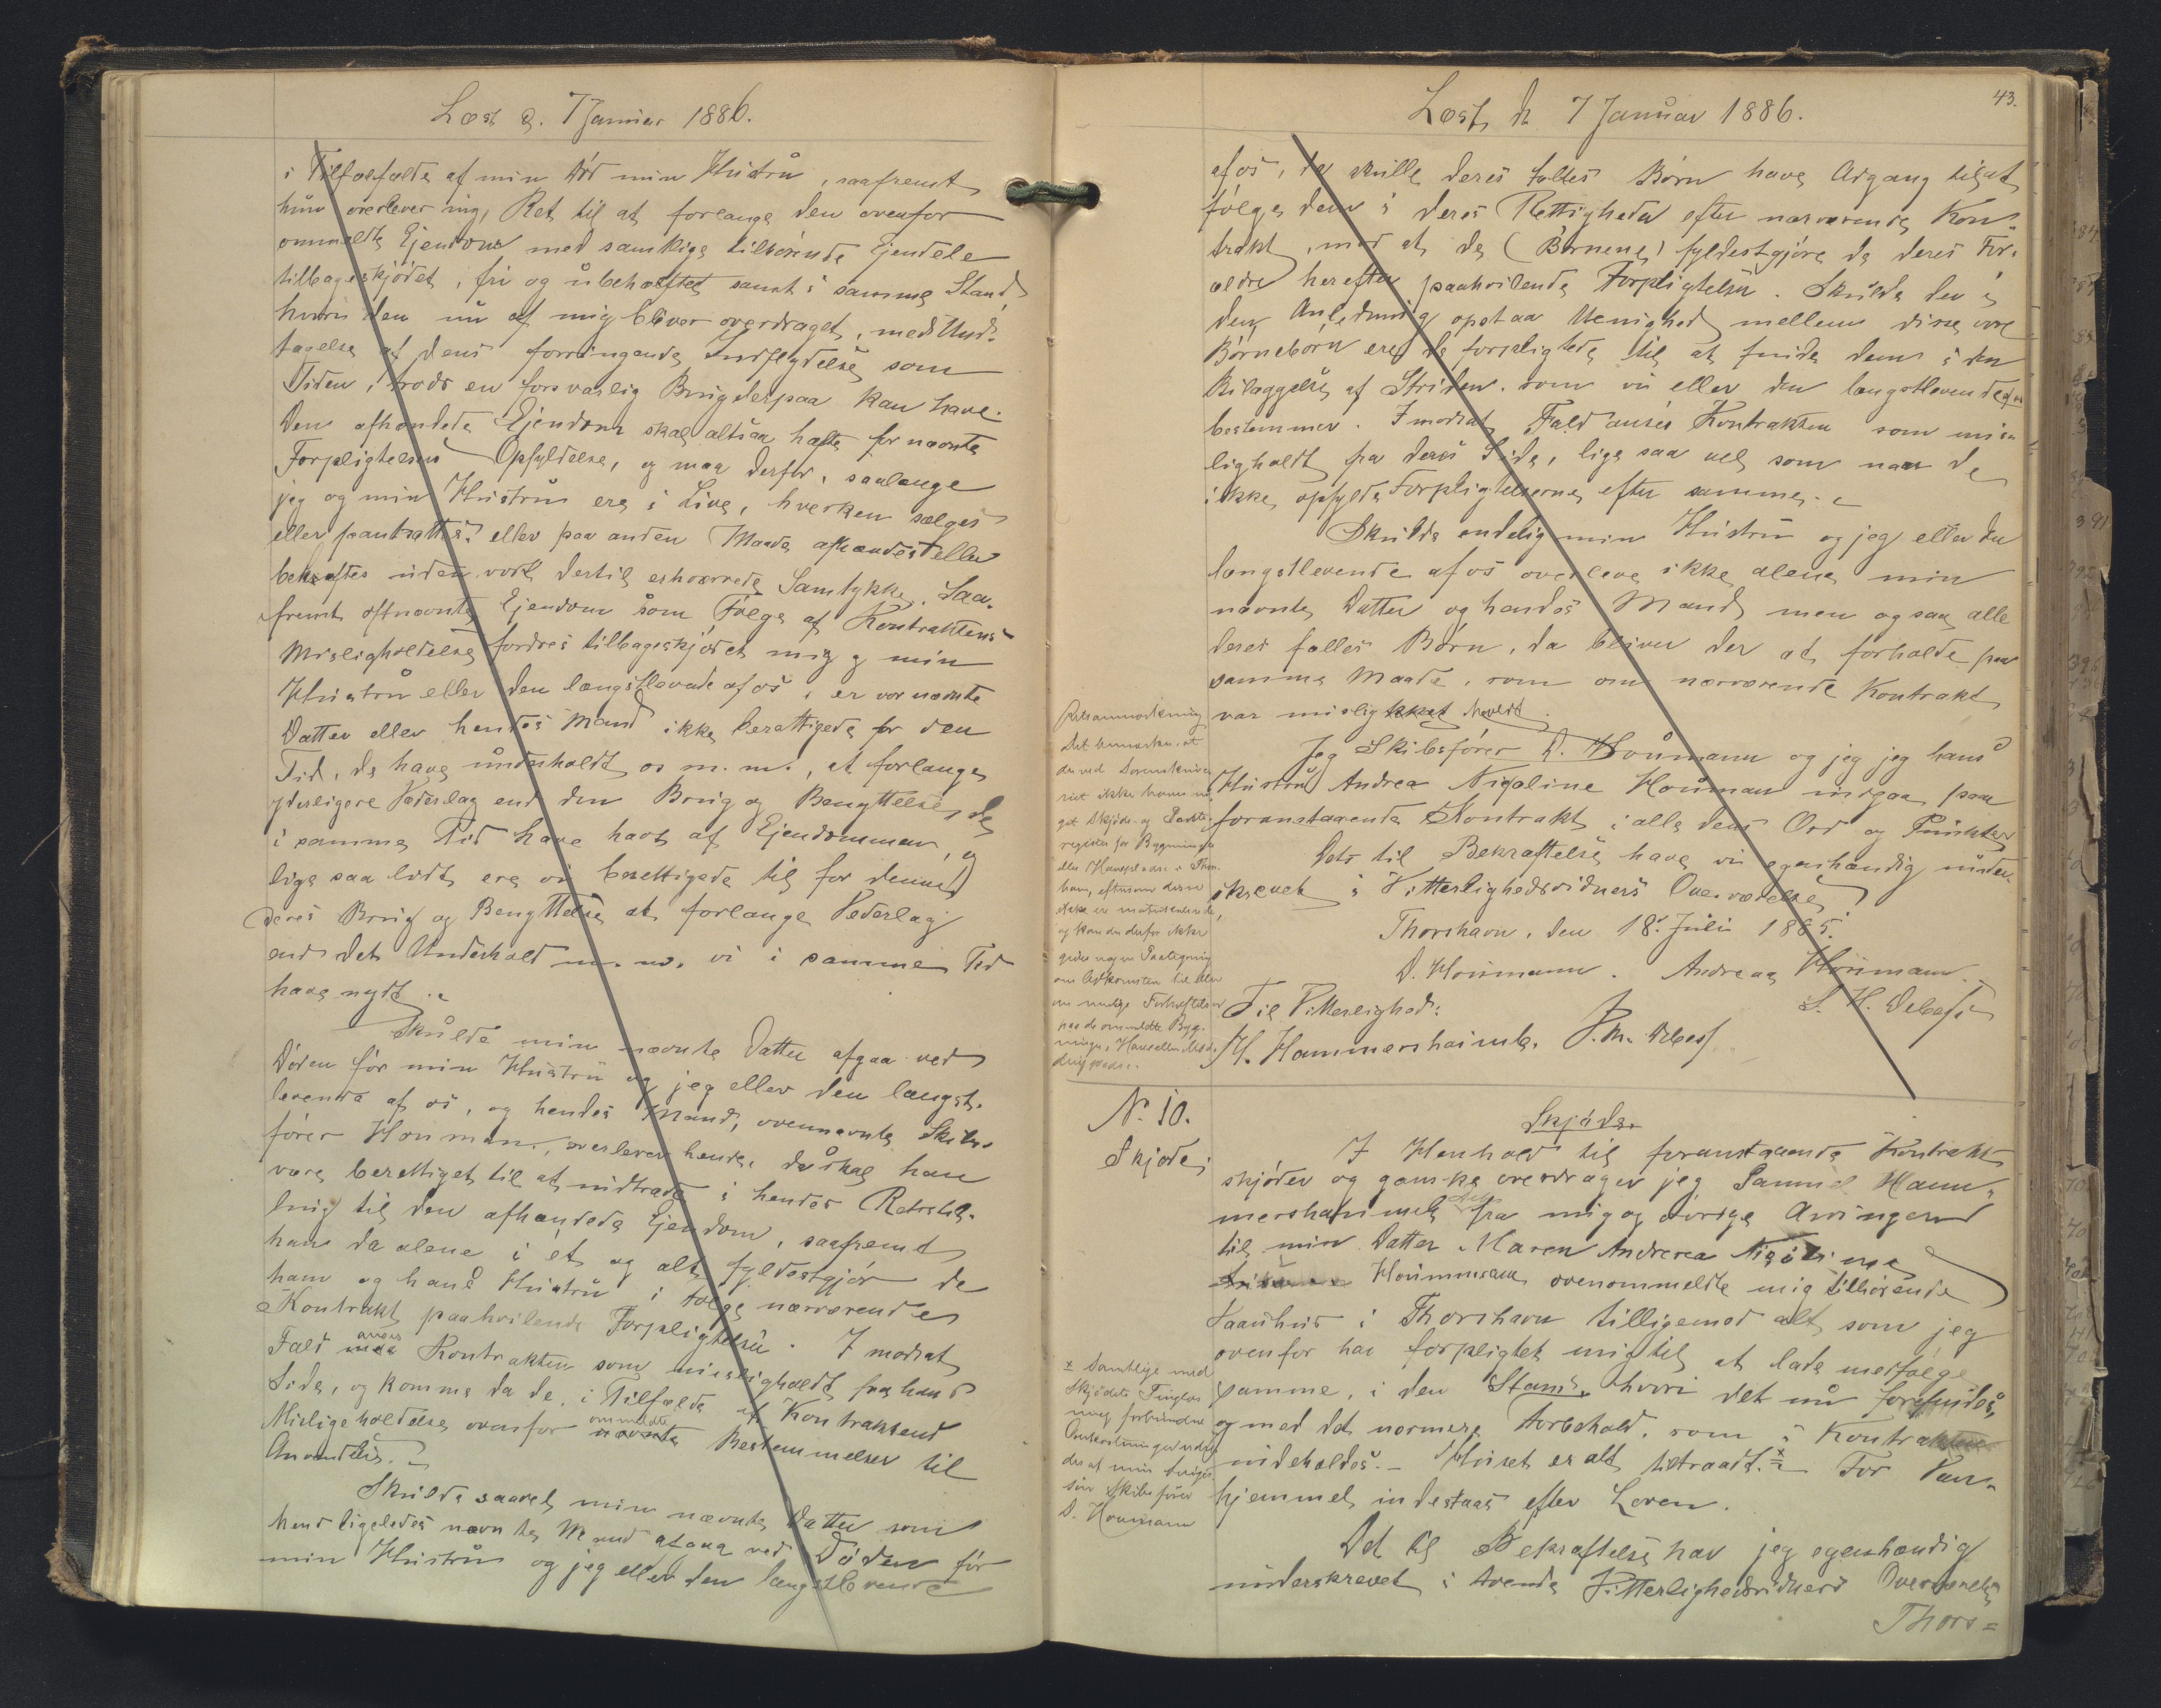 Læst d. 7 Januar 1886.
i Tilfælde af min Død min Hustru, saafremt
hun overlever mig, Ret til at forlange den ovenfor
ommeldte Ejendom med samtlige tilhørende Ejendele
tilbageskjødet, fri og ubehæftet samt i samme Stand,
hvori den nu af mig bliver overdraget, med Und-
tagelse af dens forringende Indflydelse som
Tiden, trods en forsvarlig Brug derpaa kan have.
Den afhændede Ejendom skal altsaa hæfte for nævnte
Forpligtelsers Opfyldelse, og maa derfor, saalænge
jeg og min Hustru ere i Live, hverken sælges
eller pantsættes eller paa anden Maade afhændes eller
behæftes uden vort dertil erhværvede Samtykke. Saa-
fremt oftnævnte Ejendom som Følge af Kontraktens
Misligholdelse fordres tilbageskjødet mig og min
Hustru eller den længstlevende af os, er vor nævnte
Datter eller hendes Mand ikke berettigede for den
Tid, de have underholdt os m. m., at forlange
yderligere Vederlag end den Brug og Benyttelse, de
i samme Tid have havt af Ejendommen, og
lige saa lidt ere vi berettigede til for denne
deres Brug og Benyttelse at forlange Vederlag
end det Underhold m. m. vi i samme Tid
have nydt.
Skulde min nævnte Datter afgaa ved
Døden før min Hustru og jeg eller den længst-
levende af os, og hendes Mand, ovennævnte Skibs-
fører Houmann, overlever hende, da skal han
være berettiget til at indtræde i hendes Retsstil-
ling til den afhændede Ejendom, saafremt
han da alene i ét og alt fyldestgjør de
ham og hans Hustru i Følge nærværende
Kontrakt paahvilende Forpligtelser. I modsat
Fald anses Kontrakten som misligholdt fra hans
Side, og komme da de i Tilfælde af Kontraktens
Misligeholdelse ovenfor ommeldte Bestemmelser til
Anvendelse.
Skulde saavel min nævnte Datter som
hend ligeledes nævnte Mand afgaa ved Døden før
min Hustru og jeg eller den længstlevende
43.
Læst d. 7 Januar 1886.
af os, da skulle deres fælles Børn have Adgang til at
følge dem i deres Rettigheder efter nærværende Kon-
trakt, mod at de (Børnene) fyldestgjøre de deres For-
ældre herefter paahvilende Forpligtelser. Skulde der i
den Anledning opstaa Uenighed mellem disse vore
Børnebørn ere de forpligtede til at finde dem i den
Bilæggelse af Striden, som vi eller den længstlevende
bestemmer. I modsat Fald anses Kontrakten som mis-
ligholdt fra deres Side, lige saa vel som naar de
ikke opfylde Forpligtelserne efter samme.
Skulde endelig min Hustru og jeg eller den
længstlevende af os overleve ikke alene min
nævnte Datter og hendes Mand, men ogsaa alle
deres fælles Børn, da bliver der at forholde paa
samme Maade, som om nærværende Kontrakt
var misligholdt.
Jeg Skibsfører D. Houmann og jeg jeg hans
Hustru Andrea Nicoline Houman indgaa paa
foranstaaende Kontrakt i alle dens Ord og Punkter
Dets til Bekræftelse have vi egenhændig under-
skrevet i Vitterlighedsvidners Overværelse
Thorshavn, den 18. Juli 1885.
D. Houmann. Andrea Houmann.
Til Vitterlighed: S. H. Debess
H. Hammershaimb. J. M. Debess
Retsanmærkning
Det bemærkes, at
der ved Sorenskriver
riet ikke haves no
get Skjøde- og Pante-
register for Bygninger
eller Huuspladse i Thors
havn, eftersom disse
ikke er matrikulerede,
og kan der derfor ikke
gives nogen Paategning
om Adkomsten til eller
om mulige Forhæftelser
paa de ommeldte Byg-
ninger,
No. 10.
Skjøde.
Skjøde.
I Henhold til foranstaaende Kontrakt
skjøder og ganske overdrager jeg Samuel Ham-
mershaimb fra mig og øvrige Arvinger
til min Datter Maren Andrea Nicoline
Hoummann ovenommeldte mig tilhørende
Vaanhus i Thorshavn tilligemed alt som jeg
ovenfor har forpligtet mig til at lade medfølge
samme, i den Stand, hvori det nu forefindes,
og med det nærmere Forbehold, som i Kontrakten
indeholdes. – Huset er alt tiltraadt. x For Van-
hjemmel indestaaes efter Loven.
Det til Bekræftelse har jeg egenhændig
underskrevet i tvende Vitterlighedsvidners Overværelse
Thors=
x Samtlige med
Skjødets Tinglæs
ning forbundne
Omkostninger udre
des af min Sviger
søn Skibsfører
D. Houmann